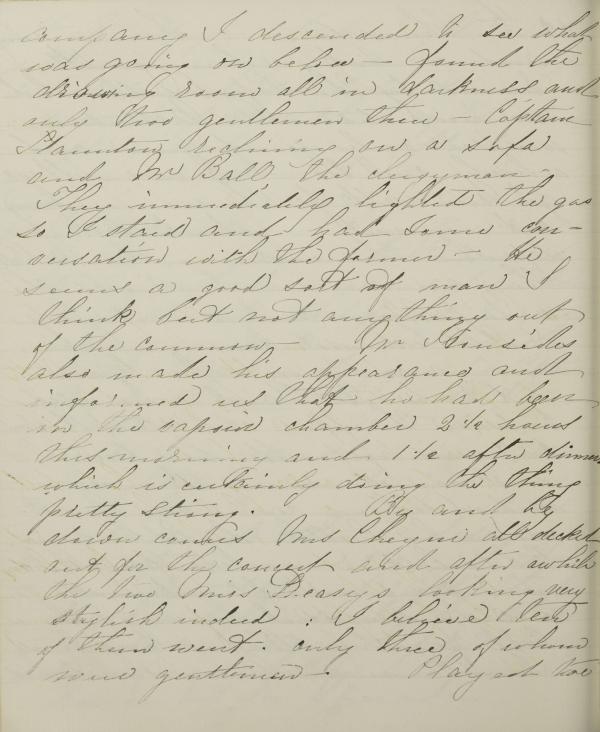 company I descended to see what
was going on below – found the
drawing room all in darkness and
only two gentlemen there – Captain
Staunton reclining on a sofa
and Mr Ball the clergyman –
They immediately lighted the gas
so I staid and had some con-
versation with the former – He
seems a good sort of man I
think but not anything out
of the common – Mr Ironsides
also made his appearance and
informed us that he had been
in the vapour chamber 2 1/2 hours
this morning and 1 1/2 after dinner
which is certainly doing the thing
pretty strong. By and by
down comes Mrs Cheyne all decked
out for the concert and after awhile
the two Miss Deasys looking very
stylish indeed : I believe ten
of them went. only three of whom
were gentlemen – Played two